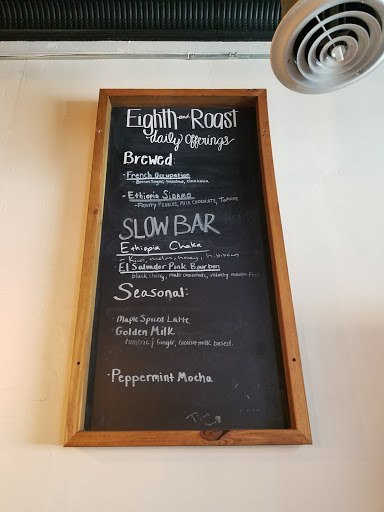 Eighth and Roast
daily offerings
Brewed:
- French Occupation
- Brown Sugar, Hazelnut, Cinnamon
- Ethiopia Sidamo
- Fruity Pebbles, Milk Chocolate, Turbine
SLOW BAR
Ethiopia Chaka
kiwi, melon, honey, hibiscus
El Salvador Pink Bourbon
black cherry, malt chocolate, velvety mouth-feel
Seasonal:
Maple Spiced Latte
Golden Milk
tumeric / Ginger, coconut-milk based.
- Peppermint Mocha